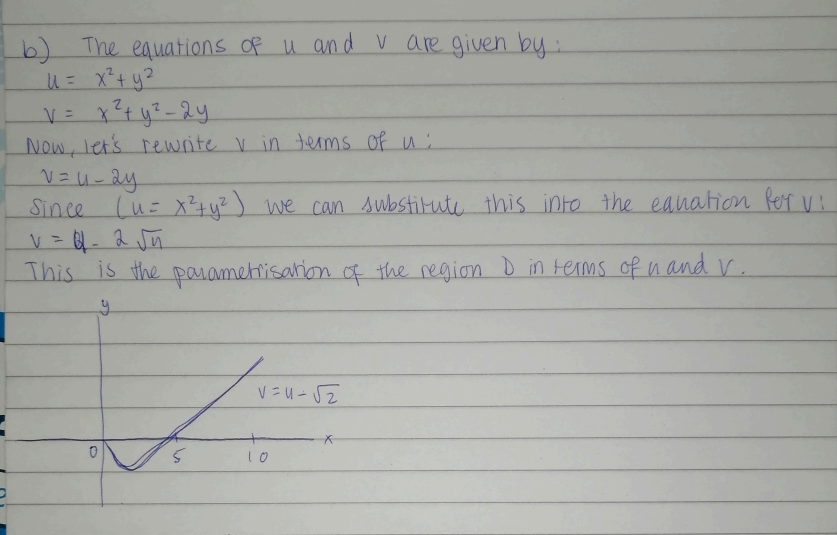 b) The equations of u and v are given by:
u = x²+y²
v = x²+y²-2y
Now, let's rewrite v in terms of u:
v = u - 2y
Since (u = x²+y²) we can substitute this into the equation for v:
v = u - 2√u
This is the parametrisation of the region D in terms of u and v.
y
v = u - √2
0 5 10 x